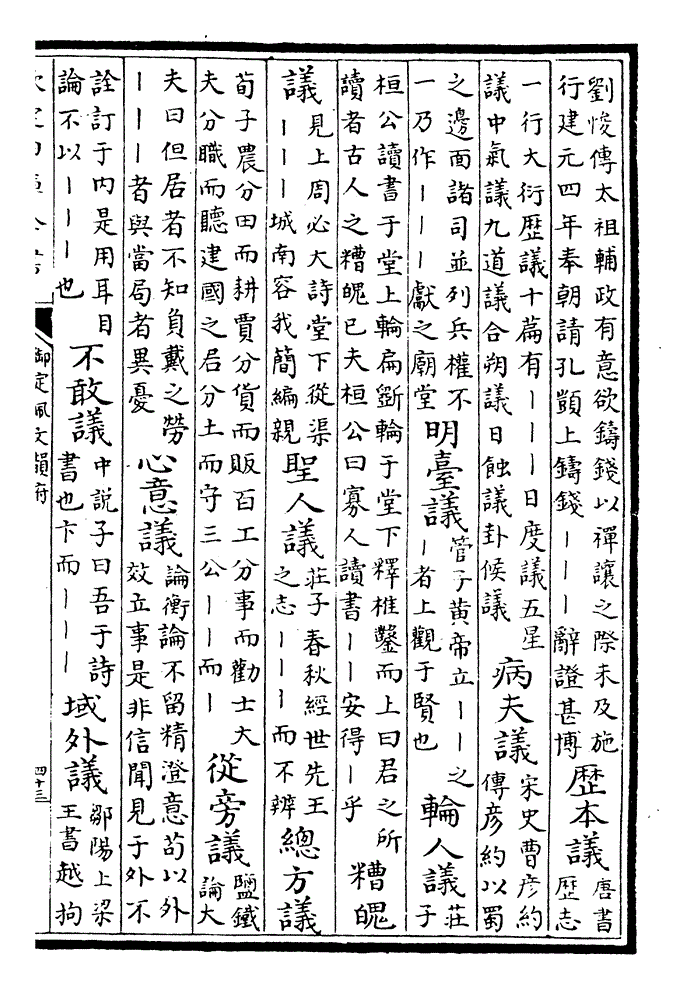 劉悛傳太祖輔政有意欲鑄錢以禪讓之際未及施
行建元四年奉朝請孔顗上鑄錢｜｜｜辭證甚博
歴本議
唐書
歴志
一行大衍歴議十篇有｜｜｜日度議五星
議中氣議九道議合朔議日蝕議卦候議
病夫議
宋史曹彦約
傳彦約以蜀
之邊面諸司並列兵權不
一乃作｜｜｜獻之廟堂
明臺議
管子黄帝立｜｜之
｜者上觀于賢也
輪人議
莊
子
桓公讀書于堂上輪扁斵輪于堂下釋椎鑿而上曰君之所
讀者古人之糟魄已夫桓公曰寡人讀書｜｜安得｜乎
糟魄
議
見上周必大詩堂下從渠
｜｜｜城南容我簡編親
聖人議
莊子春秋經世先王
之志｜｜｜而不辨
總方議
荀子農分田而耕賈分貨而販百工分事而勸士大
夫分職而聽建國之君分土而守三公｜｜而｜
從旁議
鹽鐵
論大
夫曰但居者不知負戴之勞
｜｜｜者與當局者異憂
心意議
論衡論不留精澄意苟以外
效立事是非信聞見于外不
詮訂于内是用耳目
論不以｜｜｜也
不敢議
中説子曰吾于詩
書也卞而｜｜｜
域外議
鄒陽上梁
王書越拘
御定佩文韻府
四十三